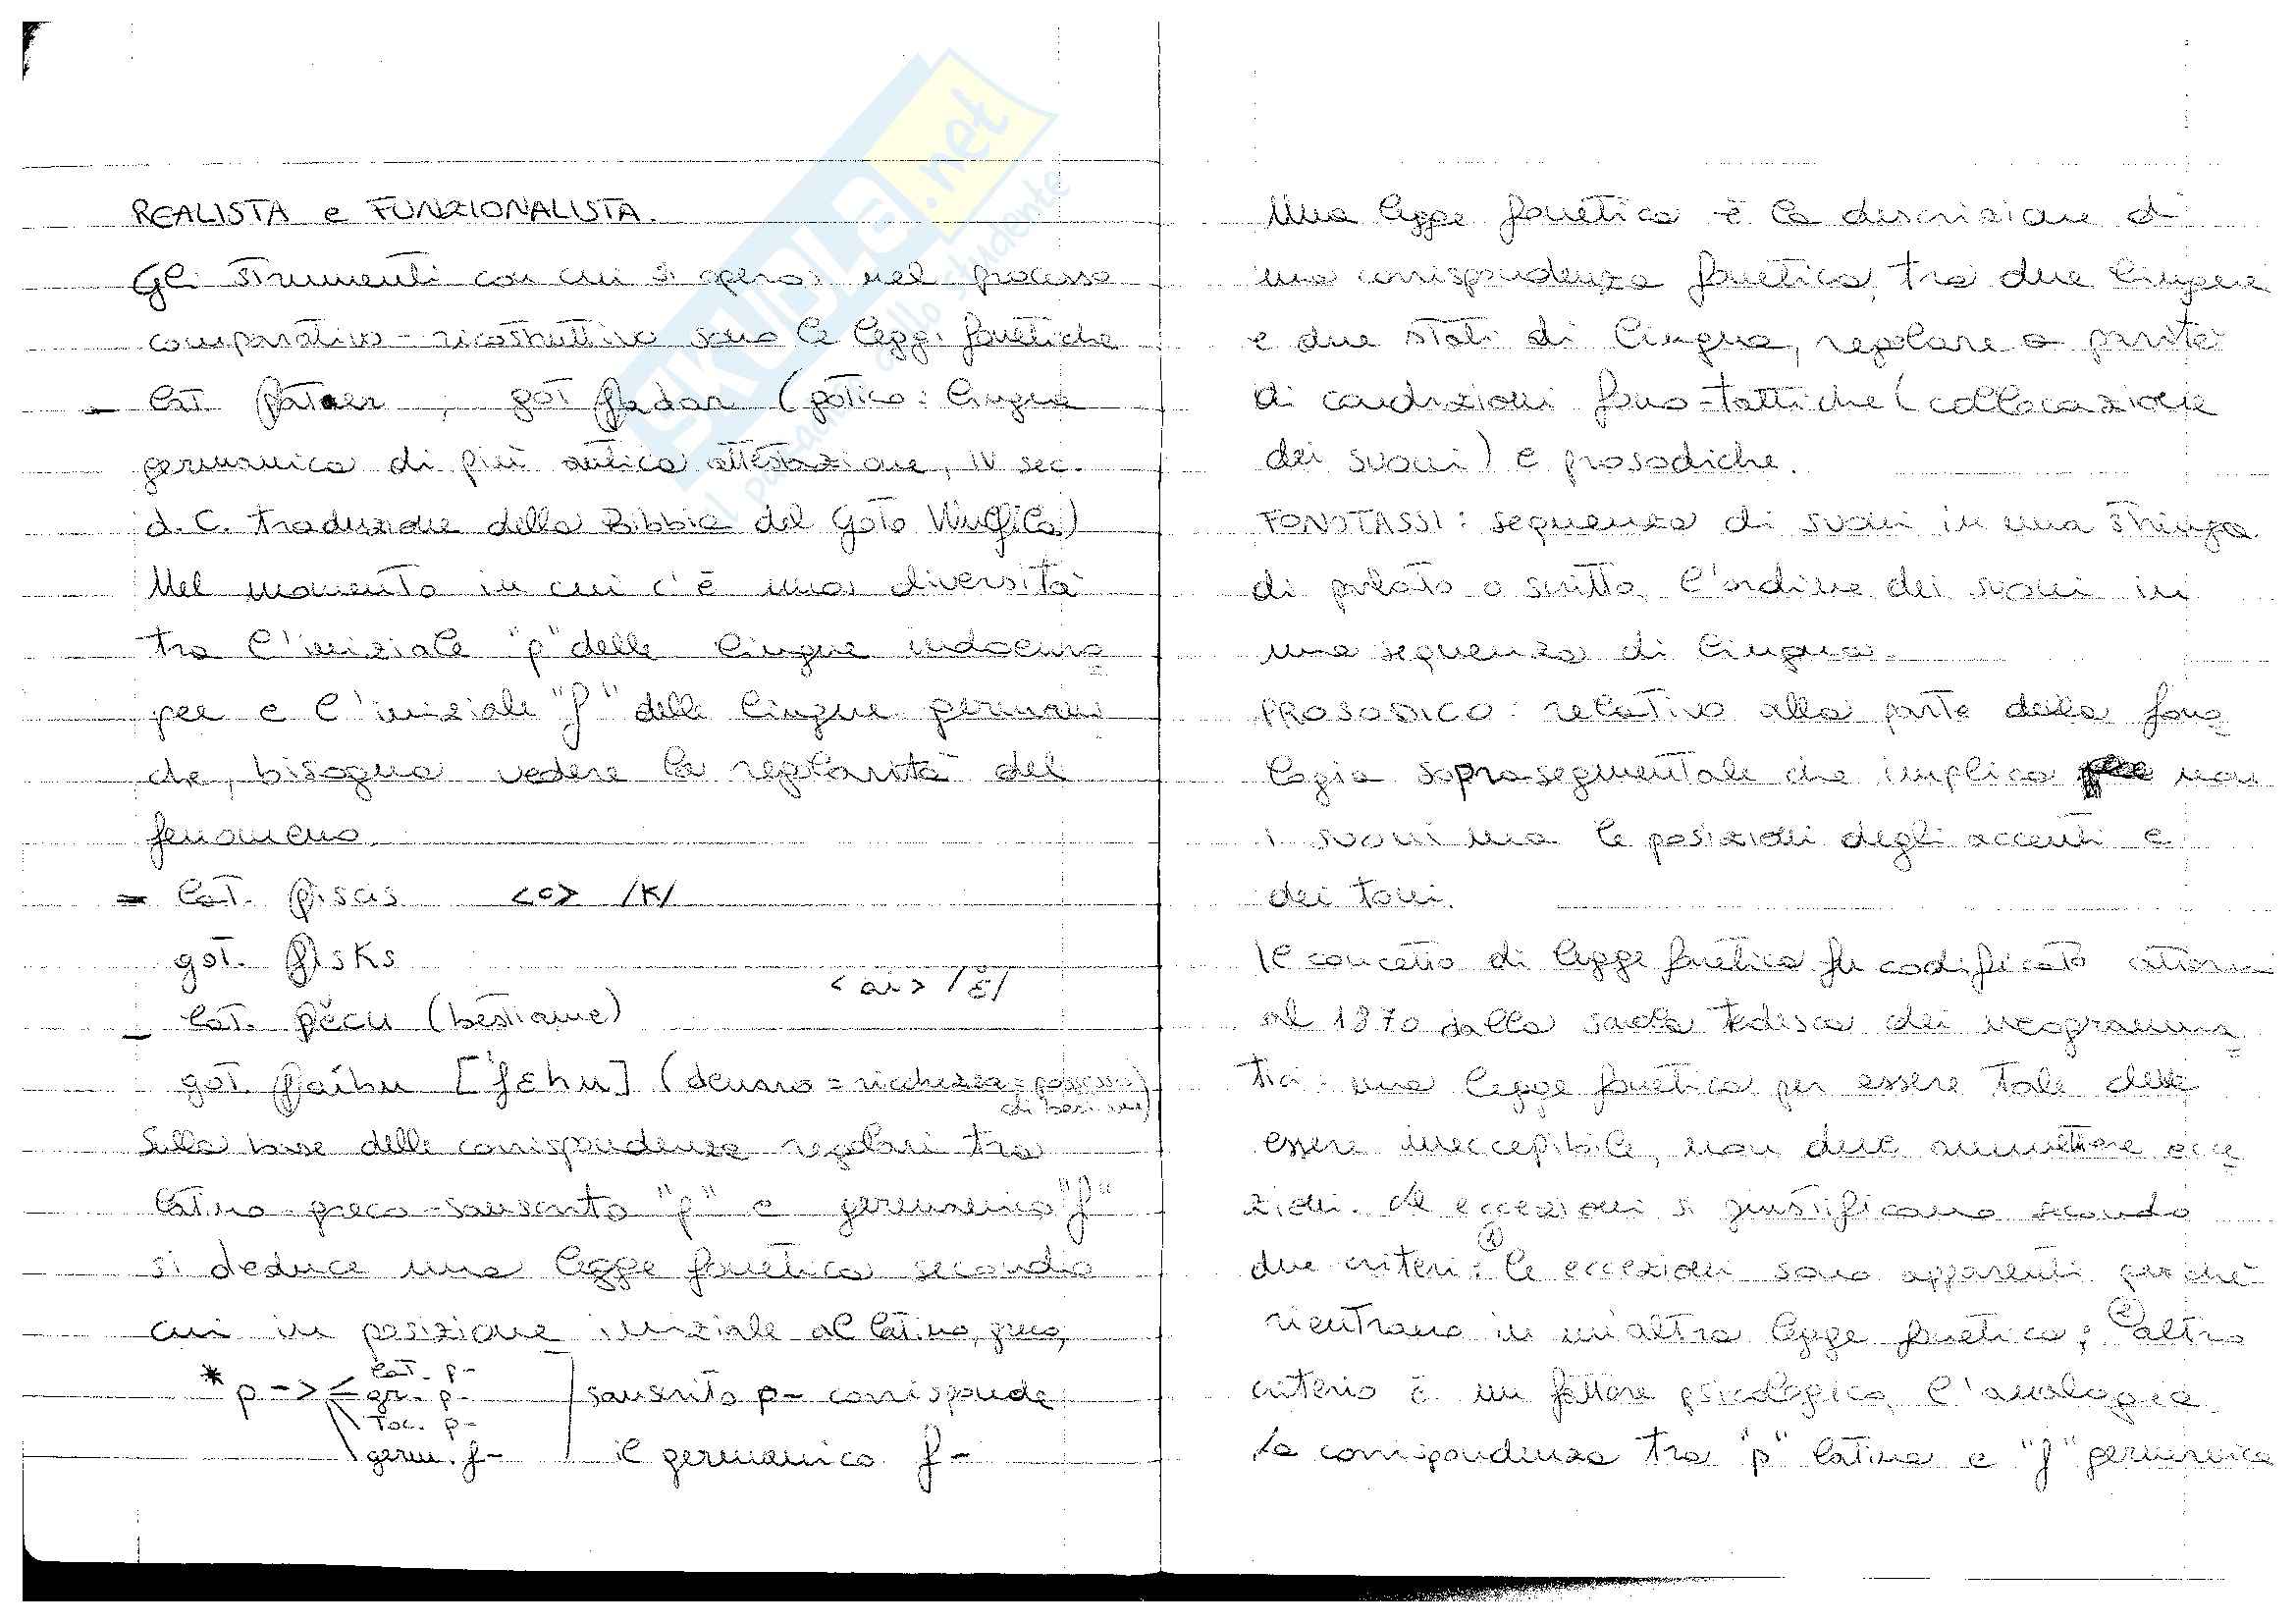 REALISTA e FUNZIONALISTA.
Gli strumenti con cui si opera nel processo
comparativo-ricostruttivo sono le leggi fonetiche
- lat. pater , got fadar (gotico: lingua
germanica di più antica attestazione, IV sec.
d.C. traduzione della Bibbia del Goto Wulfila)
Nel momento in cui c'è una diversità
tra l'iniziale "p" delle lingue indoeuro
pee e l'iniziale "f" delle lingue germani
che, bisogna vedere la regolarità del
fenomeno.
- lat. piscis <c> /K/
got. fisks
<ai> /ĕ/
- lat. pĕcu (bestiame)
got. faíhu ['fɛhu] (denaro = ricchezza = possesso
di bestiame)
Sulla base delle corrispondenze regolari tra
latino-greco-sanscrito "p" e germanico "f"
si deduce una legge fonetica secondo
cui in posizione iniziale al latino, greco,
* p -> lat. p-
gr. p-
toc. p-
germ. f-
sanscrito p- corrisponde
il germanico f-
Una legge fonetica è la descrizione di
una corrispondenza fonetica, tra due lingue
e due stati di lingua, regolare a parità
di condizioni fono-tattiche (collocazione
dei suoni) e prosodiche.
FONOTASSI: sequenza di suoni in una stringa
di parlato o scritto, l'ordine dei suoni in
una sequenza di lingua.
PROSODICO: relativo alla parte della fono
logia soprasegmentale che implica non
i suoni ma le posizioni degli accenti e
dei toni.
Il concetto di legge fonetica fu codificato attorno
al 1870 dalla scuola tedesca dei neogramma
tici: una legge fonetica per essere tale deve
essere ineccepibile, non deve ammettere ecce
zioni. Le eccezioni si giustificano secondo
due criteri: ① le eccezioni sono apparenti perché
rientrano in un'altra legge fonetica; ② altro
criterio è un fattore psicologico, l'analogia.
La corrispondenza tra "p" latina e "f" germanica
SKUOLA.net
il paradiso dello studente